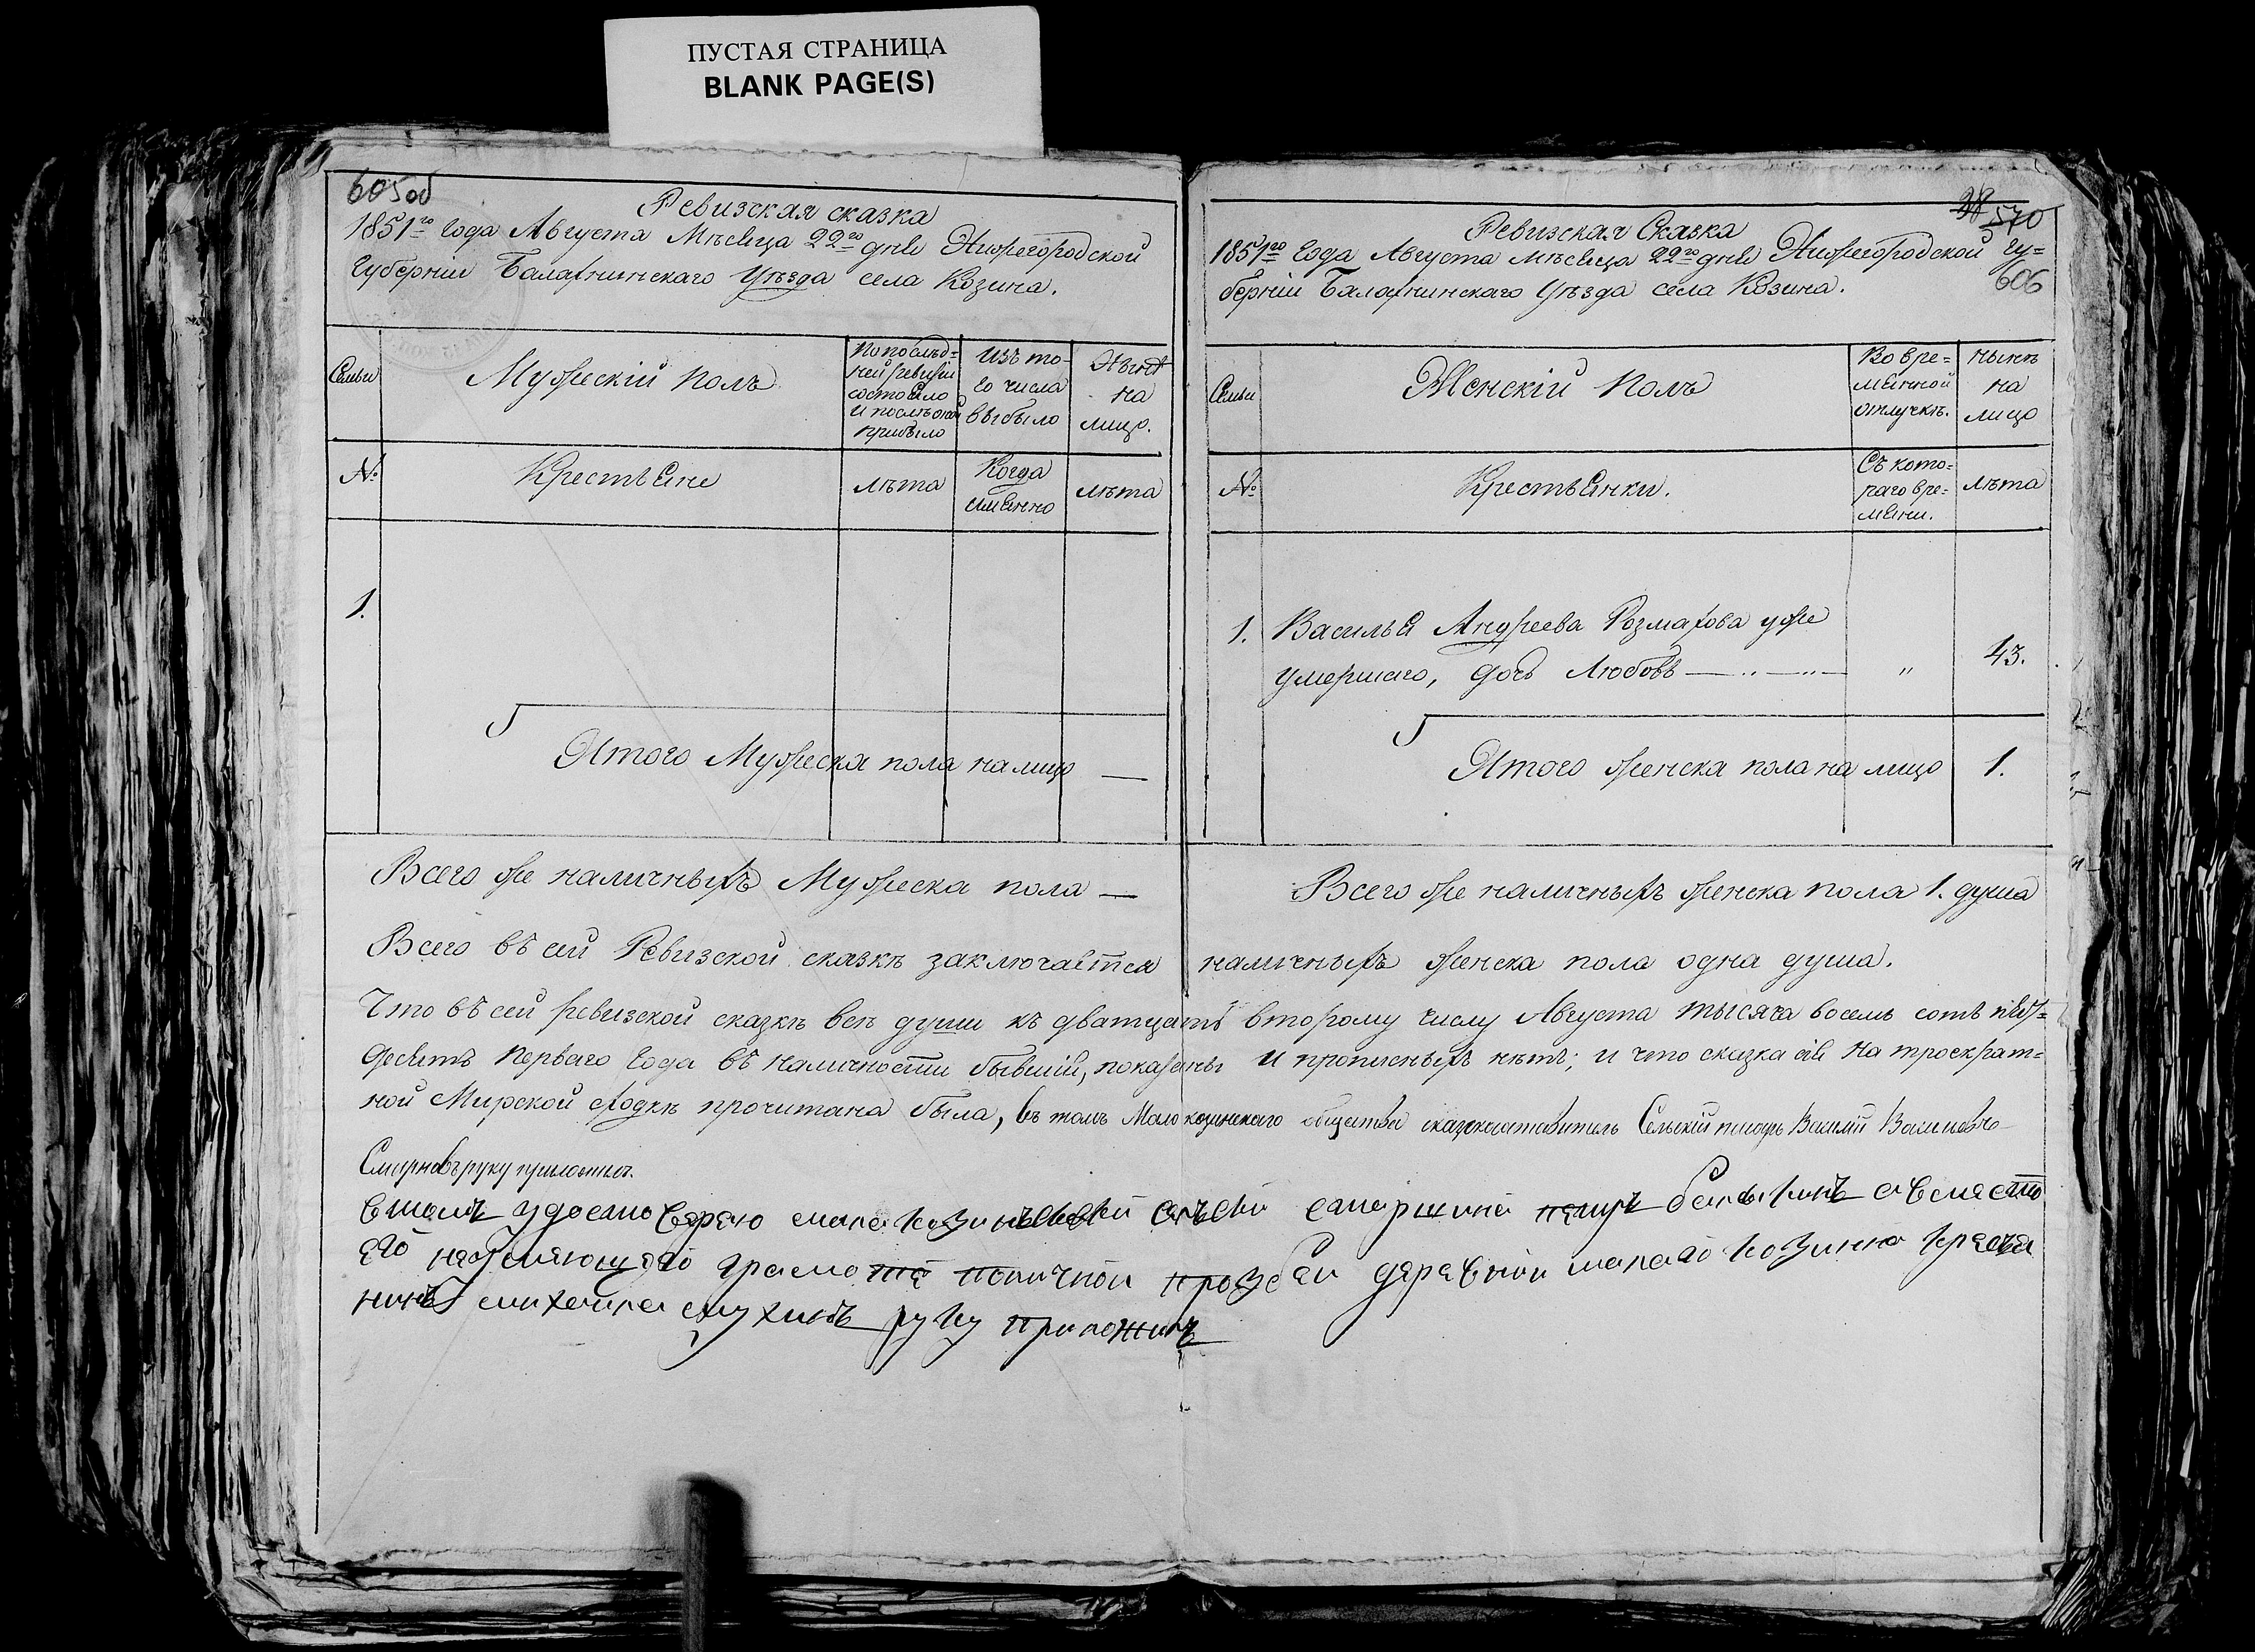 ПУСТАЯ СТРАНИЦА
BLANK PAGE(S)
605об
Ревизская сказка
1851го года Августа Мѣсяца 22го дня Нижегородской
Губерніи Балахнинскаго Уѣзда села Козина.
Семьи
Мужескій полъ
По послѣд=
ней ревизіи
состояло
и послѣ оной
прибыло
Изъ то-
го числа
выбыло
Нынѣ
на
лицо.
№
Крестьяне
лѣта
Когда
имянно
лѣта
1.
Итого Мужеска пола на лицо —
Всего же наличныхъ Мужеска пола —
38 570
Ревизская Сказка
1851го Года Августа мѣсяца 22го дня Нижегородской Гу=
берніи Балахнинскаго Уѣзда села Козина.
606
Семьи
Женскій Полъ
Во вре=
мянной
отлучкѣ.
нынѣ
на
лицо
№
Крестьянки.
Съ кото=
раго вре=
мяни.
лѣта
1. Василья Андреева Розмахова уже
умершаго, дочь Любовь — „ — „ — „ 43.
Итого женска пола на лицо 1.
Всего же наличныхъ женска пола 1. душа
Всего въ сей Ревизской сказкѣ заключается наличныхъ женска пола одна душа.
Что въ сей ревизской сказкѣ всѣ души къ дватцать второму числу Августа тысяча восемь сотъ пять=
десятъ перваго года въ наличности бывшія, показаны и прописныхъ нѣтъ; и что сказка сія на троекрат=
ной Мирской сходкѣ прочитана была, въ томъ Мало козинскаго общества сказкосоставитель Сельскій писарь Василій Васильевъ
Смирновъ руку приложилъ.
Вътомъ удостоверяю мала козинъской старшина
его неумеющаго грамоте поличной прозбеи деревнии малаго козинно крестья
нинъ михеила мухинъ руку приложилъ